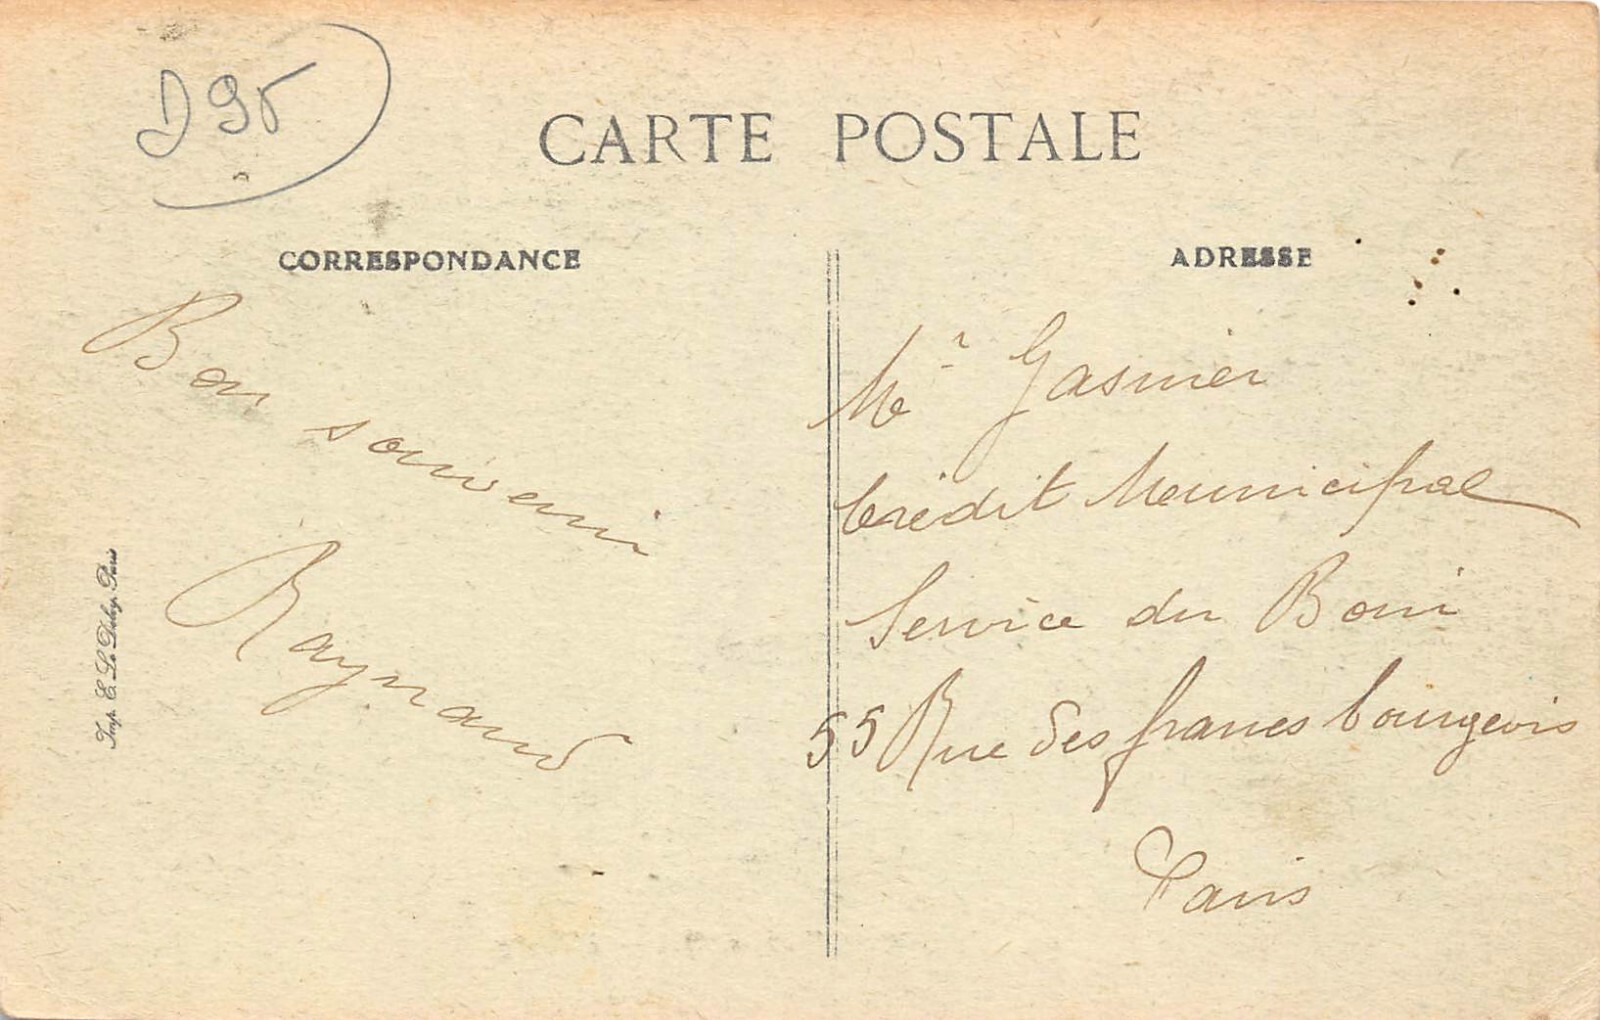 D95
CARTE POSTALE
CORRESPONDANCE
Bon souvenir
Raynaud
Imp. E. Le Deley, Paris
ADRESSE
Mr Gasnier
Crédit Municipal
Service du Boni
55 Rue des francs bourgeois
Paris